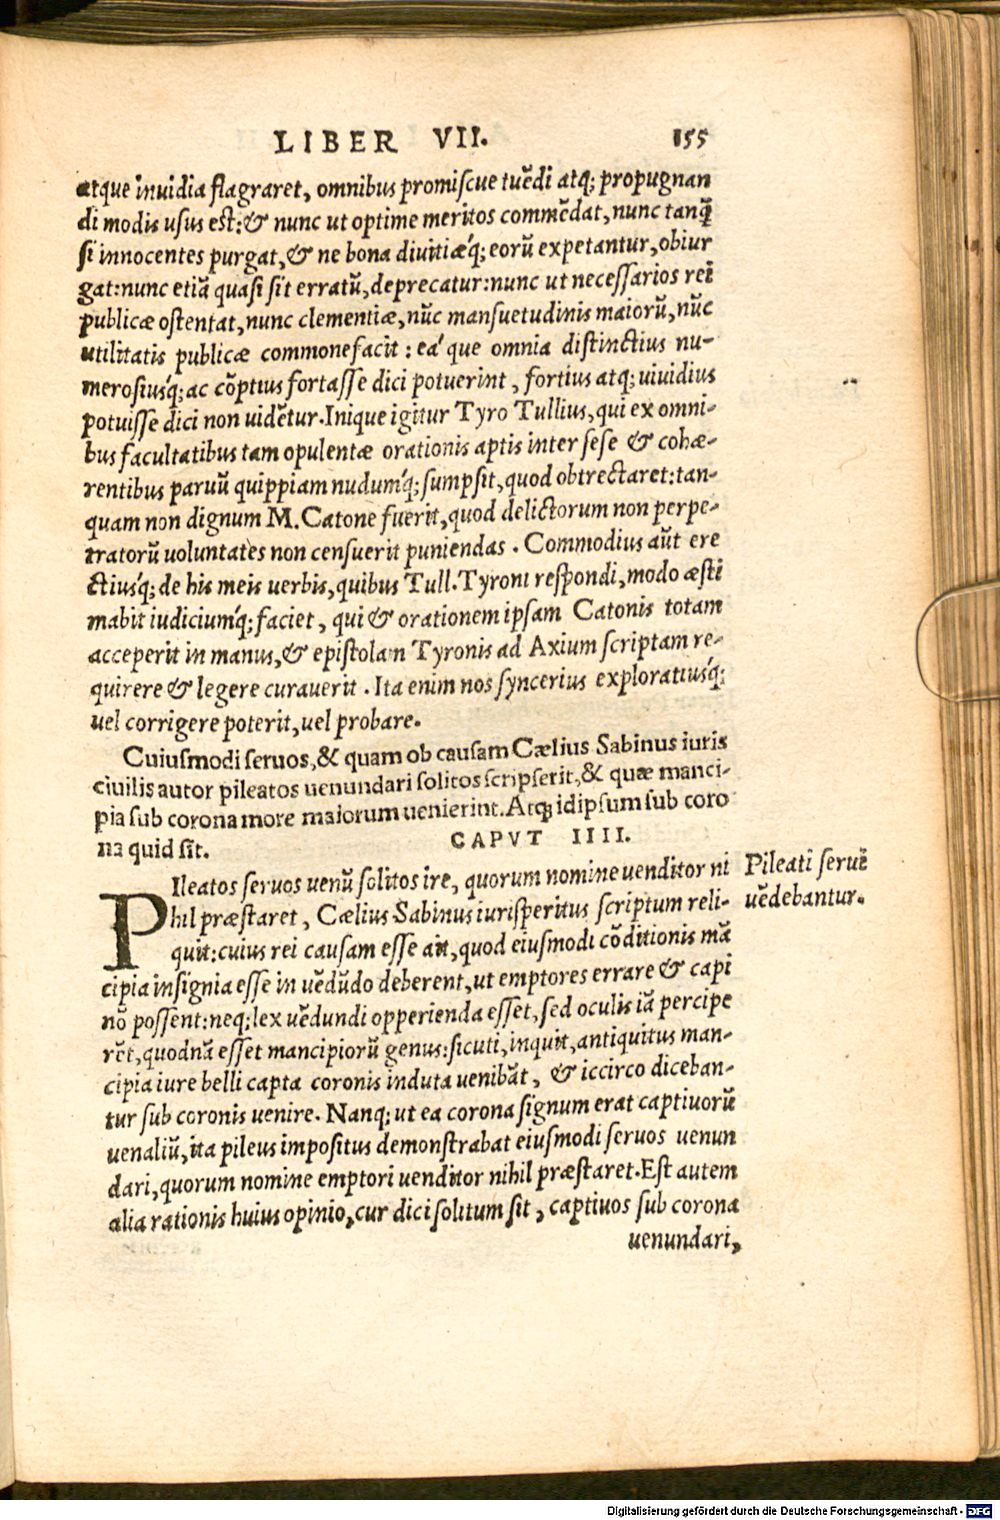 LIBER VII. 155
atque inuidia flagraret, omnibus promiſcue tuēdi atq; propugnan
di modis uſus est: & nunc ut optime meritos commēdat, nunc tanq̃
ſi innocentes purgat, & ne bona diuitiæ'q; eorū expetantur, obiur
gat: nunc etiā quaſi ſit erratū, deprecatur: nunc ut neceſſarios rei
publicæ oſtentat, nunc clementiæ, nūc manſuetudinis maiorū, nūc
utilitatis publicæ commonefacit: ea' que omnia diſtinctius nu-
meroſius'q; ac cōptius fortaſſe dici potuerint, fortius atq; uiuidius
potuiſſe dici non uidētur. Inique igitur Tyro Tullius, qui ex omni-
bus facultatibus tam opulentæ orationis aptis inter ſeſe & cohæ-
rentibus paruū quippiam nudum'q; ſumpſit, quod obtrectaret: tan-
quam non dignum M. Catone fuerit, quod delictorum non perpe-
tratorū uoluntates non cenſuerit puniendas. Commodius aūt ere
ctius'q; de his meis uerbis, quibus Tull. Tyroni reſpondi, modo æſti
mabit iudicium'q; faciet, qui & orationem ipſam Catonis totam
acceperit in manus, & epiſtolam Tyronis ad Axium ſcriptam re-
quirere & legere curauerit. Ita enim nos ſyncerius exploratius'q;
uel corrigere poterit, uel probare.
Cuiuſmodi ſeruos, & quam ob cauſam Cælius Sabinus iuris
ciuilis autor pileatos uenundari ſolitos ſcripſerit, & quæ manci-
pia ſub corona more maiorum uenierint. Atq; idipſum ſub coro
na quid ſit. CAPVT IIII.
PIleatos ſeruos uenū ſolitos ire, quorum nomine uenditor ni
hil præſtaret, Cælius Sabinus iuriſperitus ſcriptum reli-
quit: cuius rei cauſam eſſe ait, quod eiuſmodi cōditionis mā
cipia inſignia eſſe in uēdūdo deberent, ut emptores errare & capi
nō poſſent: neq; lex uēdundi opperienda eſſet, ſed oculis iā percipe
rēt, quodnā eſſet mancipiorū genus: ſicuti, inquit, antiquitus man-
cipia iure belli capta coronis induta uenibāt, & iccirco diceban-
tur ſub coronis uenire. Nanq; ut ea corona ſignum erat captiuorū
uenaliū, ita pileus impoſitus demonſtrabat eiuſmodi ſeruos uenun
dari, quorum nomine emptori uenditor nihil præſtaret. Eſt autem
alia rationis huius opinio, cur dici ſolitum ſit, captiuos ſub corona
uenundari,
Pileati ſerui
uēdebantur.
Digitalisierung gefördert durch die Deutsche Forschungsgemeinschaft - DFG